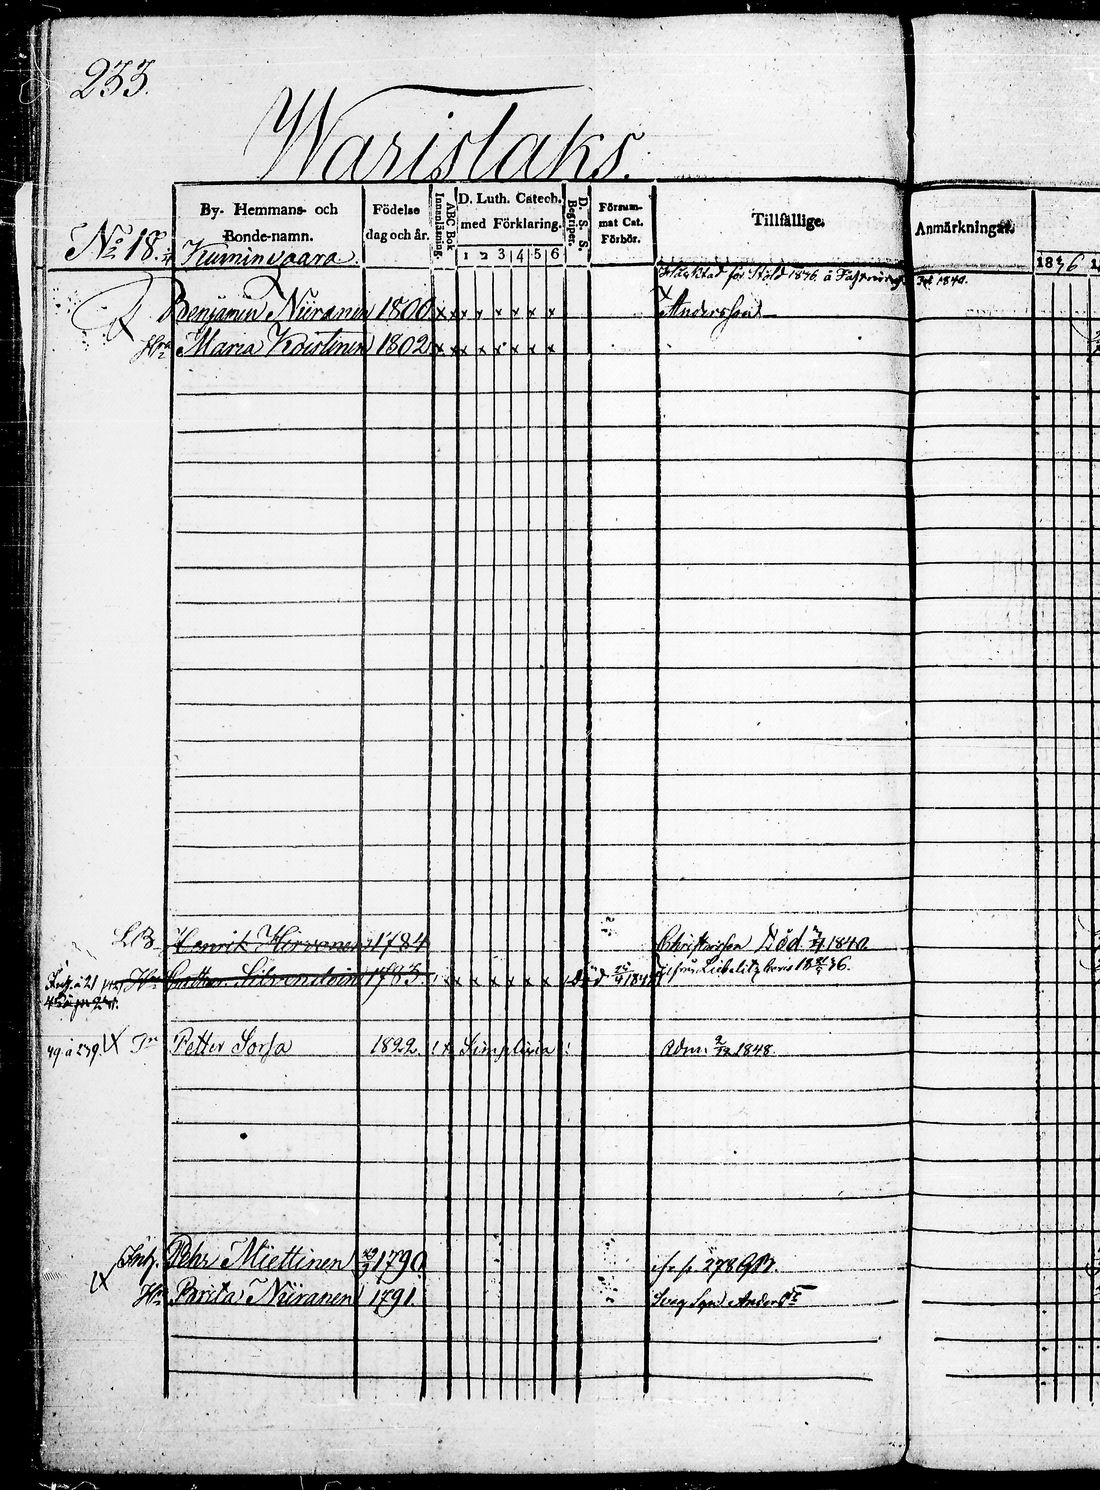 233.
Waristaks.
By- Hemmans- och
Bonde-namn.
Födelse
dag och år.
Innanläsning.
ABC Bok
D. Luth. Catech.
med Förklaring.
1 2 3 4 5 6
D. S. S.
Begriper.
Försum-
mat Cat.
Förhör.
Tillfällige
Anmärkningar.
No 18. Kuminvaara
för Stöld 1836 å 1840.
Benjamin Niiranen 1800 x x x x x x x x Andersson
Maria Koistinen 1802 x x x x x x x x
LB Henrik Hirvonen 1784 Christerson Död 1840
Hu 1783 x x x x x x x Död från Liebelitz
49 á 539 Petter Sorsa 1822 Simplicia Adm. 2/12 1848.
Inh. Pehr Miettinen 1790 fr. p. 278
Hu Brita Niiranen 1791. Anders